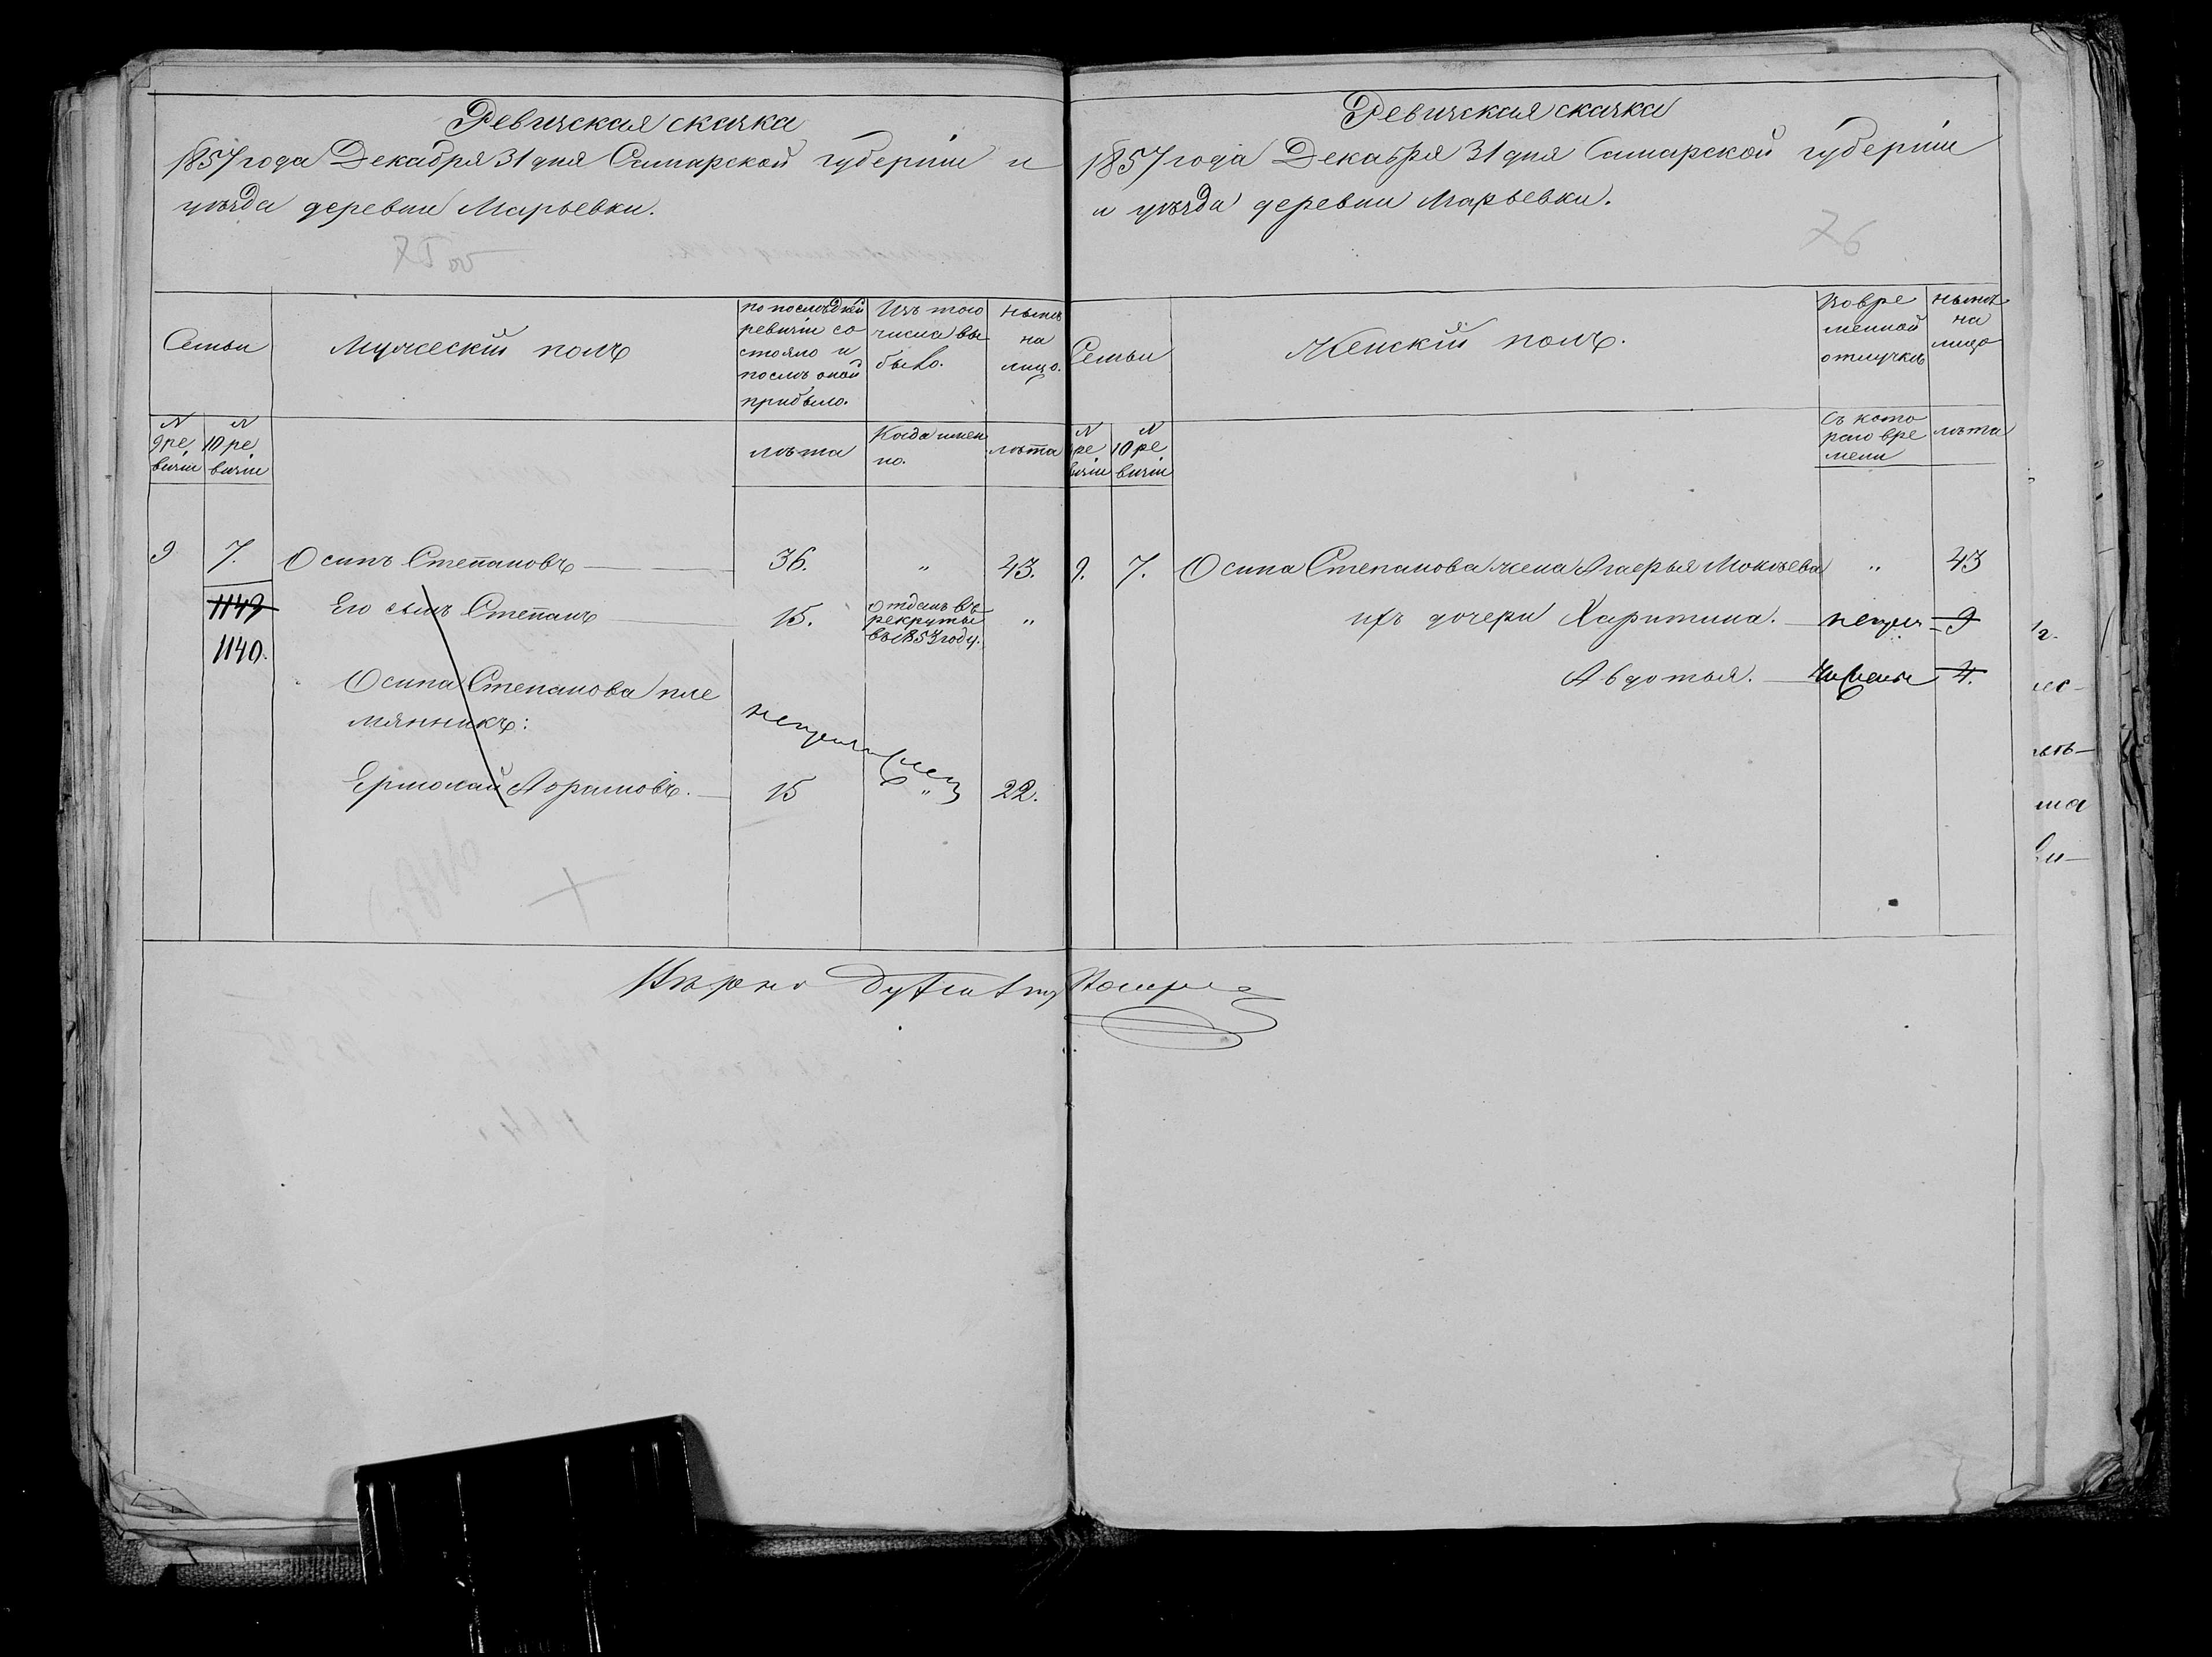 Ревижская скажка
1857 года Декабря 31 дня Самарской губерніи и
уѣзда деревни Марьевки.
75 об
Семьи
Мужескій полъ
по послѣдней
ревизіи со
стояло и
послѣ оной
прибыло.
Изъ того
числа вы
было.
Нынѣ
на
лицо.
N
9 ре
визіи
N
10 ре
визіи
лѣта
Когда имен
но.
лѣта
9 7. Осипъ Степановъ 36. " 43.
1149
1140.
Его сынъ Степанъ 15. "
Отданъ въ
рекруты
въ 1853 году.
Осипа Степанова пле
мянникъ:
Ермолай Абрамовъ. 15 " 22.
Вѣрно
Ревижская скажка
1857 года Декабря 31 дня Самарской губерніи
и уѣзда деревни Марьевки.
76
Семьи
Женскій полъ.
Во вре
менной
отлучкѣ
Нынѣ
на
лицо
N
ре
визіи
N
10 ре
визіи
Съ кото
раго вре
мени
лѣта
9. 7. Осипа Степанова жена Агаѳья Мокѣева " 43
ихъ дочери Харитина. 9
Авдотья. 4.